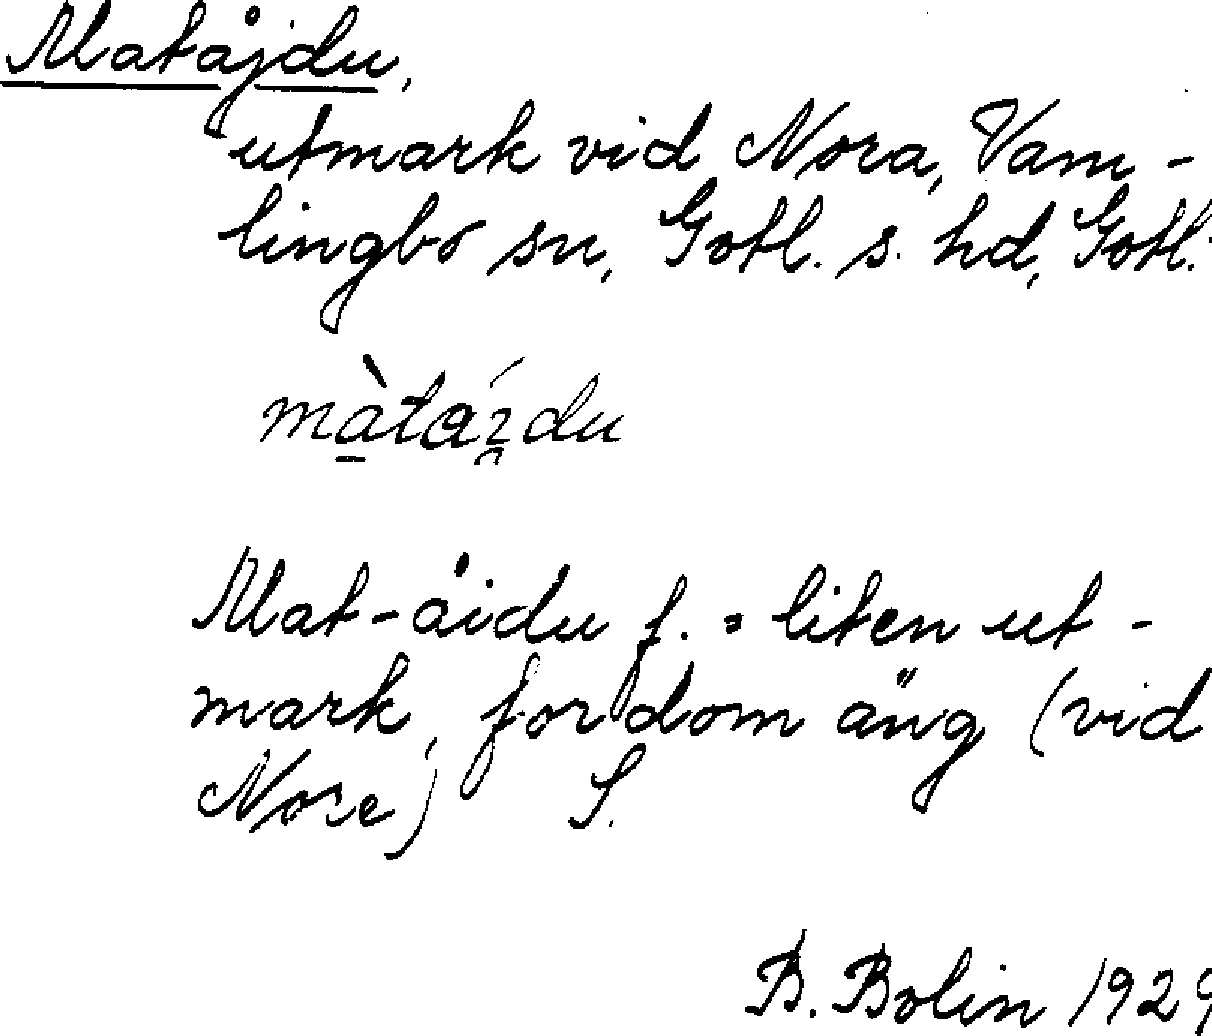 Matåjdu,
utmark vid Nora, Vam-
lingbo sn, Gotl. s. hd, Gotl.
Mat-åidu f. = liten ut-
mark, fordom äng (vid
Nore) S.
B. Bolin 1929